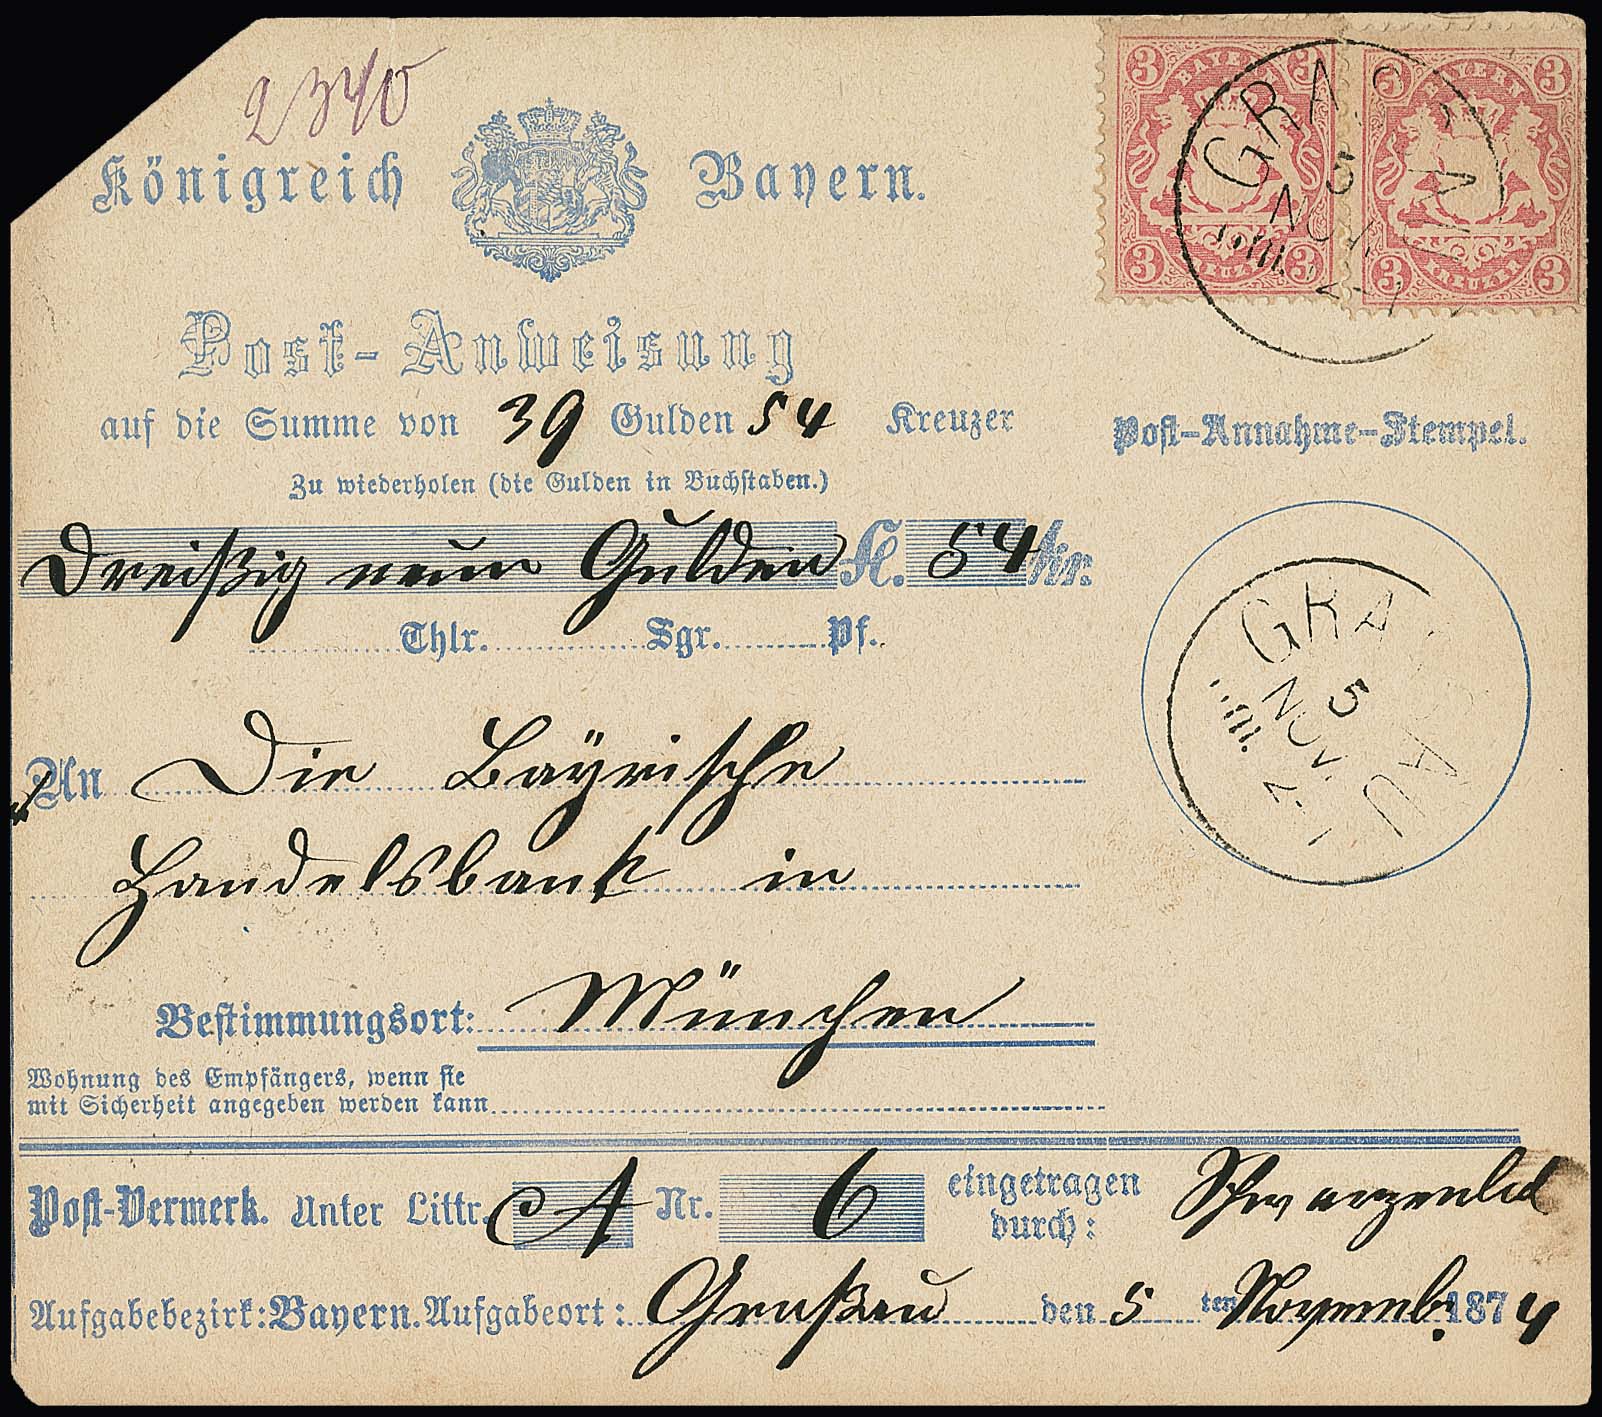 2340
Königreich Bayern.
3 BAYERN 3
3 KREUZER 3
3 BAYERN 3
3 KREUZER 3
5 NOV.
Post-Anweisung
auf die Summe von 39 Gulden 54 Kreuzer
Post-Annahme-Stempel.
Zu wiederholen (die Gulden in Buchstaben.)
Dreißig neun Gulden fl. 54 kr.
Thlr. Sgr. Pf.
GRASSAU
5
NOV.
An Die Bayrische
Handelsbank in
Bestimmungsort: München
Wohnung des Empfängers, wenn sie
mit Sicherheit angegeben werden kann
Post-Vermerk. Unter Littr. A Nr. 6 eingetragen
durch:
Aufgabebezirk: Bayern. Aufgabeort: Graßau den 5 ten Novemb. 1874